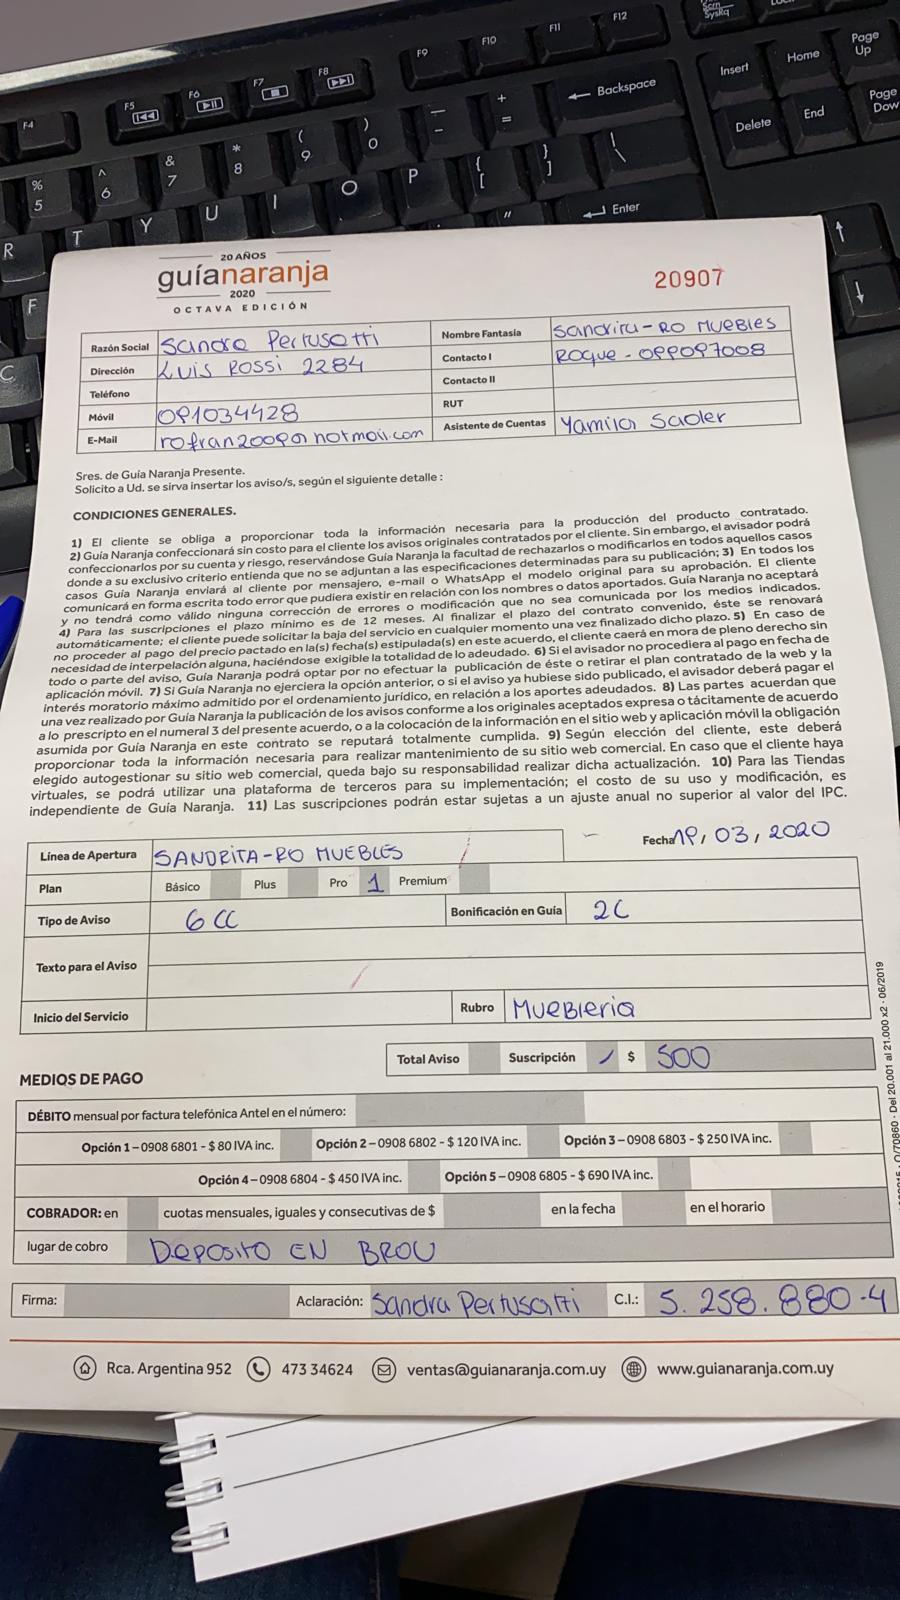 F4 F5 F6 F7 F8 F9 F10 F11 F12 Scrn SysRq
Backspace Insert Home Page Up
Delete End Page Dow
% 5 ^ 6 & 7 * 8 ( 9 ) 0 — - + = { [ } ] | \
R T Y U I O P Enter
F
C
20 AÑOS
guíanaranja
2020
OCTAVA EDICIÓN
20907
Razón Social Sandra Pertusatti Nombre Fantasía Sandrita-RO MUEBLES
Dirección Luis Rossi 2284 Contacto I Roque - 099097008
Teléfono Contacto II
Móvil 091034428 RUT
E-Mail rofran2009@hotmail.com Asistente de Cuentas Yamila Sadler
Sres. de Guía Naranja Presente.
Solicito a Ud. se sirva insertar los aviso/s, según el siguiente detalle :
CONDICIONES GENERALES.
1) El cliente se obliga a proporcionar toda la información necesaria para la producción del producto contratado.
2) Guía Naranja confeccionará sin costo para el cliente los avisos originales contratados por el cliente. Sin embargo, el avisador podrá
confeccionarlos por su cuenta y riesgo, reservándose Guía Naranja la facultad de rechazarlos o modificarlos en todos aquellos casos
donde a su exclusivo criterio entienda que no se adjuntan a las especificaciones determinadas para su publicación; 3) En todos los
casos Guía Naranja enviará al cliente por mensajero, e-mail o WhatsApp el modelo original para su aprobación. El cliente
comunicará en forma escrita todo error que pudiera existir en relación con los nombres o datos aportados. Guía Naranja no aceptará
y no tendrá como válido ninguna corrección de errores o modificación que no sea comunicada por los medios indicados.
4) Para las suscripciones el plazo mínimo es de 12 meses. Al finalizar el plazo del contrato convenido, éste se renovará
automáticamente; el cliente puede solicitar la baja del servicio en cualquier momento una vez finalizado dicho plazo. 5) En caso de
no proceder al pago del precio pactado en la(s) fecha(s) estipulada(s) en este acuerdo, el cliente caerá en mora de pleno derecho sin
necesidad de interpelación alguna, haciéndose exigible la totalidad de lo adeudado. 6) Si el avisador no procediera al pago en fecha de
todo o parte del aviso, Guía Naranja podrá optar por no efectuar la publicación de éste o retirar el plan contratado de la web y la
aplicación móvil. 7) Si Guía Naranja no ejerciera la opción anterior, o si el aviso ya hubiese sido publicado, el avisador deberá pagar el
interés moratorio máximo admitido por el ordenamiento jurídico, en relación a los aportes adeudados. 8) Las partes acuerdan que
una vez realizado por Guía Naranja la publicación de los avisos conforme a los originales aceptados expresa o tácitamente de acuerdo
a lo prescripto en el numeral 3 del presente acuerdo, o a la colocación de la información en el sitio web y aplicación móvil la obligación
asumida por Guía Naranja en este contrato se reputará totalmente cumplida. 9) Según elección del cliente, este deberá
proporcionar toda la información necesaria para realizar mantenimiento de su sitio web comercial. En caso que el cliente haya
elegido autogestionar su sitio web comercial, queda bajo su responsabilidad realizar dicha actualización. 10) Para las Tiendas
virtuales, se podrá utilizar una plataforma de terceros para su implementación; el costo de su uso y modificación, es
independiente de Guía Naranja. 11) Las suscripciones podrán estar sujetas a un ajuste anual no superior al valor del IPC.
Fecha 19/03/2020
Línea de Apertura SANDRITA-RO MUEBLES
Plan Básico Plus Pro 1 Premium
Tipo de Aviso 6 CC Bonificación en Guía 2C
Texto para el Aviso
Inicio del Servicio Rubro MUEBLERIA
Total Aviso Suscripción / $ 500
MEDIOS DE PAGO
DÉBITO mensual por factura telefónica Antel en el número:
Opción 1 – 0908 6801 - $ 80 IVA inc. Opción 2 – 0908 6802 - $ 120 IVA inc. Opción 3 – 0908 6803 - $ 250 IVA inc.
Opción 4 – 0908 6804 - $ 450 IVA inc. Opción 5 – 0908 6805 - $ 690 IVA inc.
COBRADOR: en cuotas mensuales, iguales y consecutivas de $ en la fecha en el horario
lugar de cobro DEPOSITO EN BROU
Firma: Aclaración: Sandra Pertusatti C.I.: 5.258.880-4
Rca. Argentina 952 473 34624 ventas@guianaranja.com.uy www.guianaranja.com.uy
O/70860 - Del 20.001 al 21.000 x2 - 06/2019